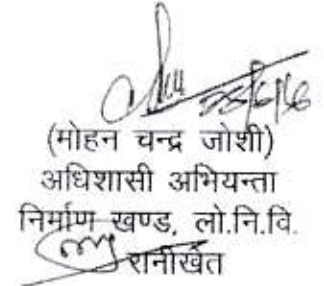 (मोहन चन्द्र जोशी)
अधिशासी अभियन्ता
निर्माण खण्ड, लो.नि.वि.
रानीखेत